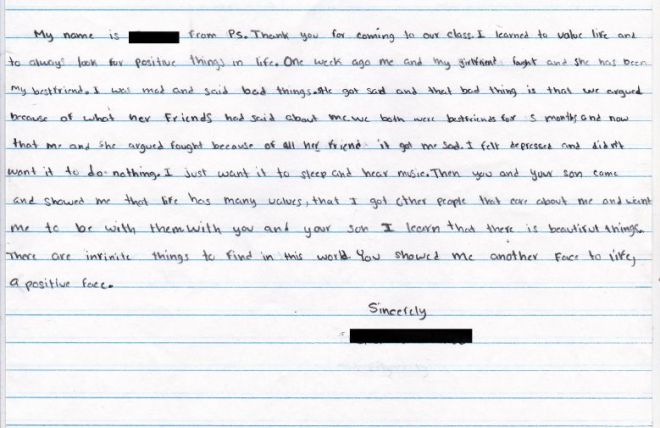 My name is from P.S. Thank you for coming to our class. I learned to value life and
to always look for positive things in life. One week ago me and my girlfriend fought and she has been
my bestfriend. I was mad and said bad things. He got sad and that bad thing is that we argued
because of what her friends had said about me. We both were bestfriends for 5 months and now
that me and she argued fought because of all her friend it got me sad. I felt depressed and didn't
want it to do nothing. I just want it to sleep and hear music. Then you and your son came
and showed me that life has many values, that I got other people that care about me and want
me to be with them with you and your son I learn that there is beautiful things.
There are infinite things to find in this world. You showed me another face to life,
a positive face.
Sincerely